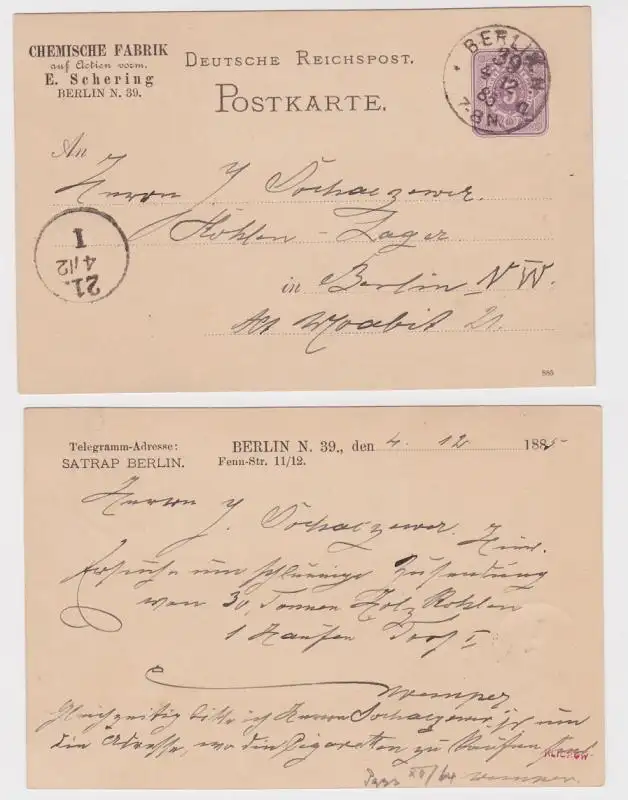 CHEMISCHE FABRIK
auf Actien vorm.
E. Schering
BERLIN N. 39.
DEUTSCHE REICHSPOST.
POSTKARTE.
BERLIN N
39
4 12
85
7-8 N.
An
Herrn J. Sochaczewer.
Kohlen-Lager
in Berlin NW.
Alt Moabit 21.
21.
4/12
I
885
Telegramm-Adresse:
SATRAP BERLIN.
BERLIN N. 39., den 4. 12 1885
Fenn-Str. 11/12.
Herrn J. Sochaczewer. Hier.
Ersuche um schleunige Zusendung
von 30, Tonnen Holz Kohlen
1 Haufen
Gleichzeitig bitte ich Herrn Sochaczewer um
die Adresse, wo die Cigaretten zu kaufen sind